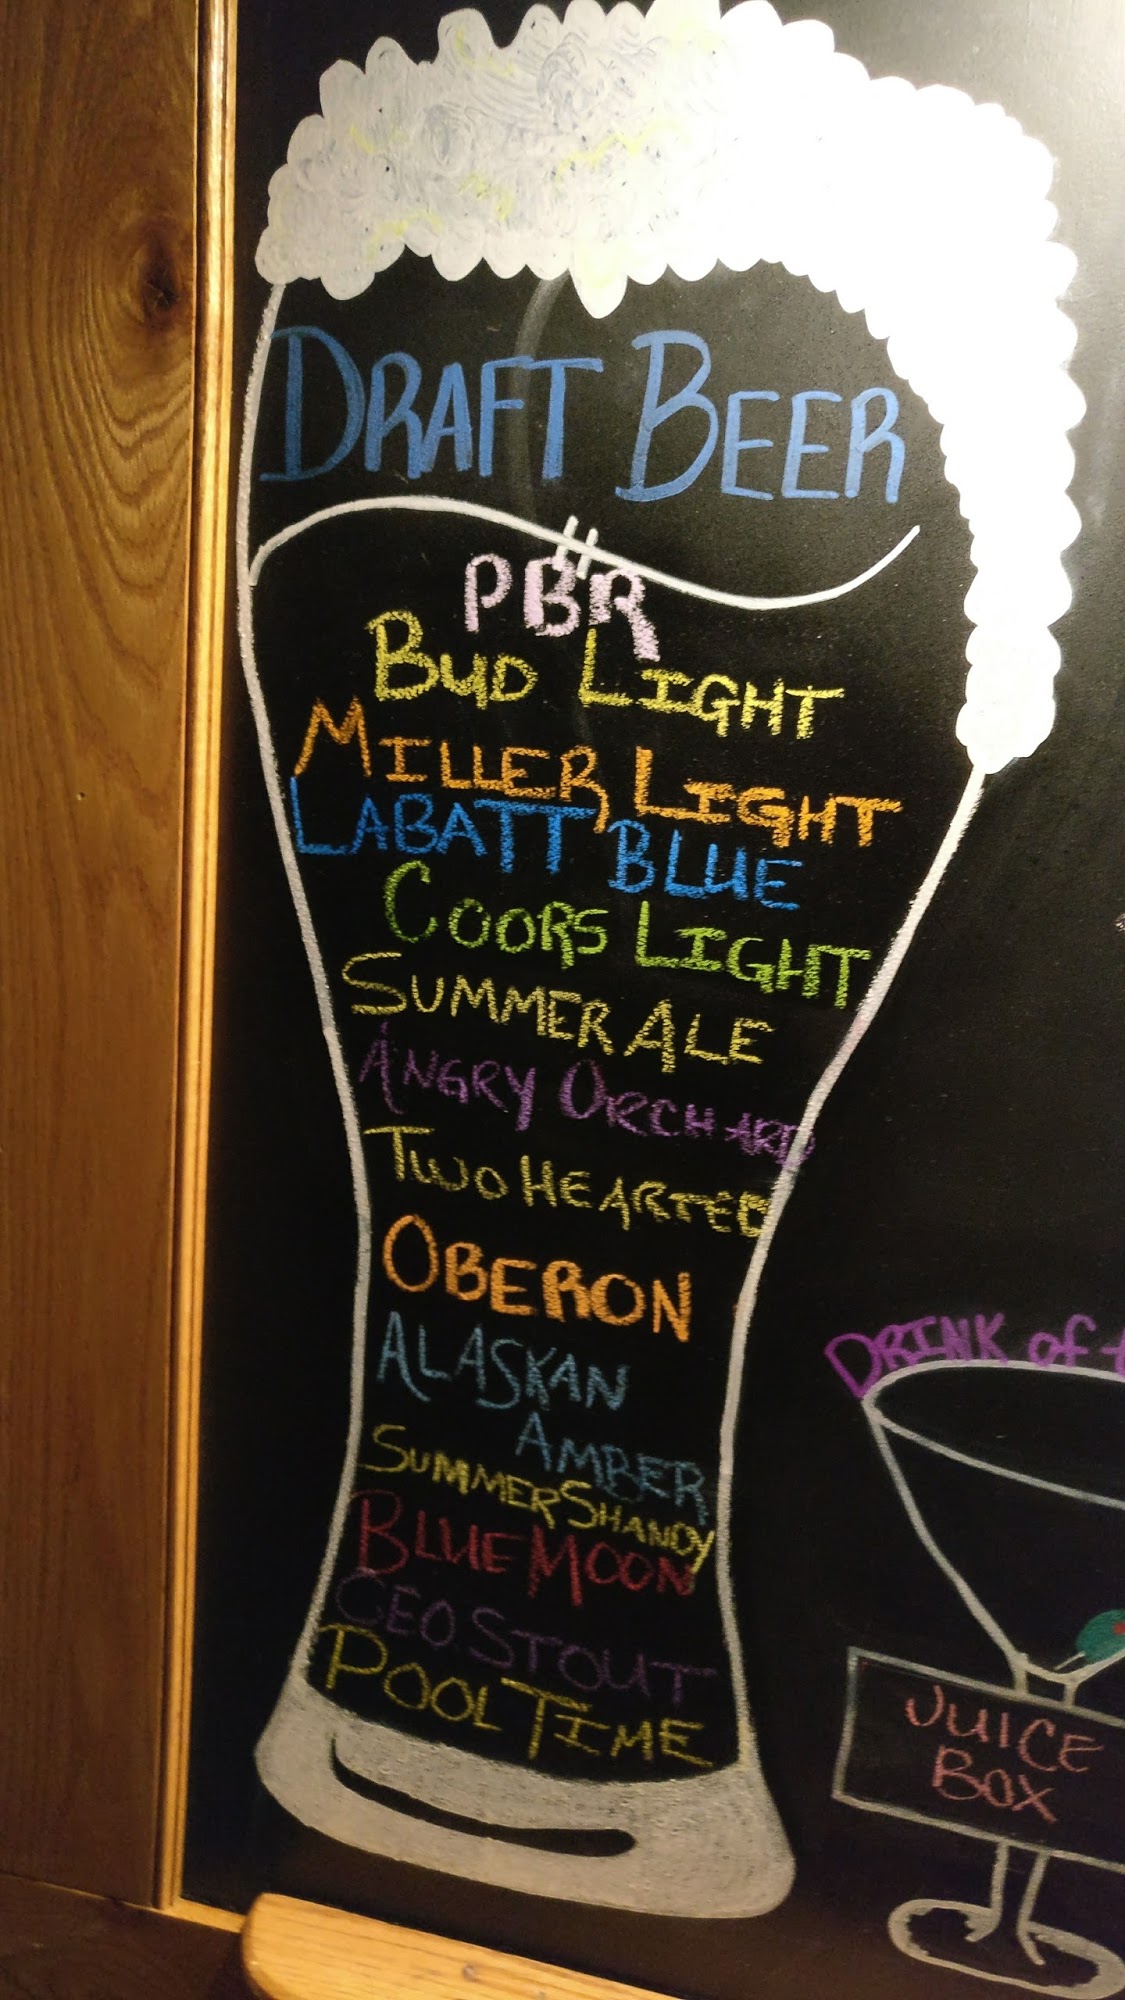 DRAFT BEER
PBR
BUD LIGHT
MILLER LIGHT
LABATT BLUE
COORS LIGHT
SUMMER ALE
ANGRY ORCHARD
TWO HEARTED
OBERON
ALASKAN
AMBER
SUMMER SHANDY
BLUE MOON
CEO STOUT
POOL TIME
DRINK of
JUICE
BOX